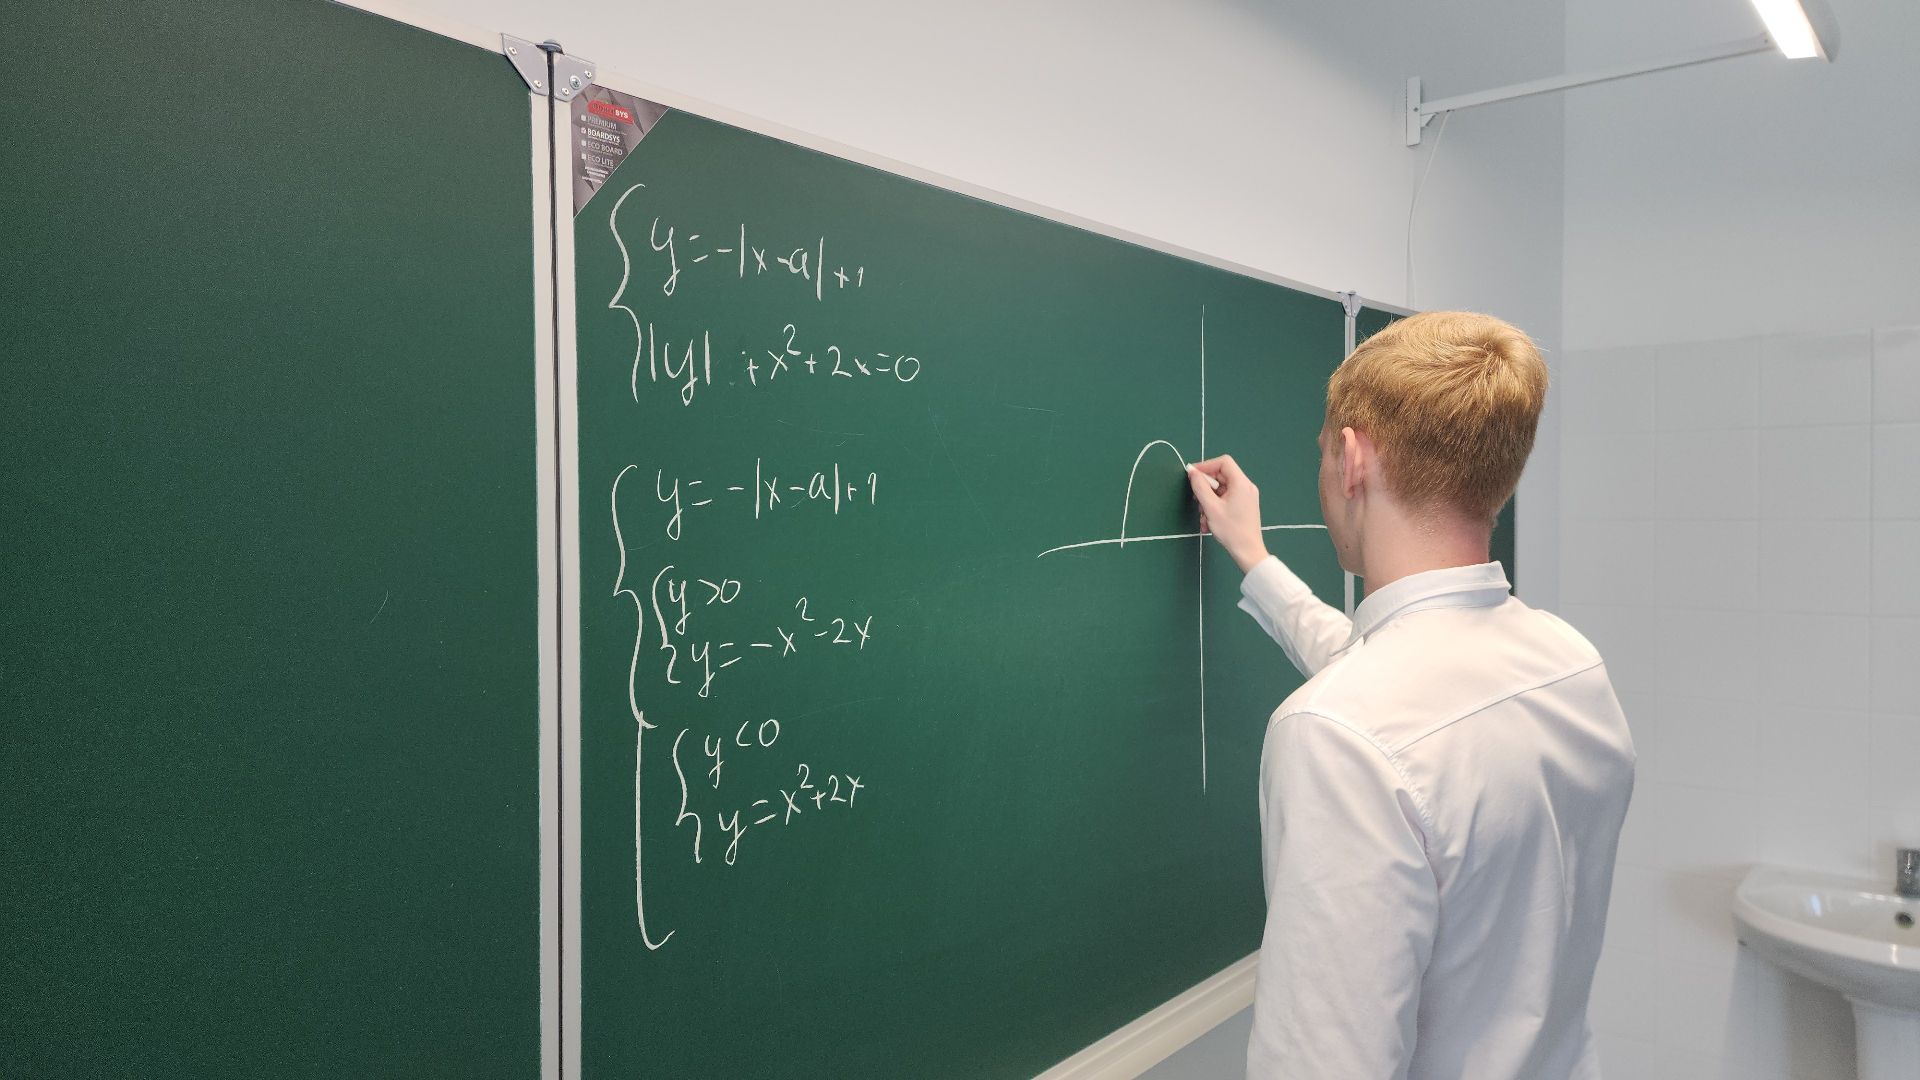 SYS
PREMIUM
BOARDSYS
ECO BOARD
ECO LITE
y=-|x-a|+1
|y| +x²+2x=0
y=-|x-a|+1
y>0
y=-x²-2x
y<0
y=x²+2x